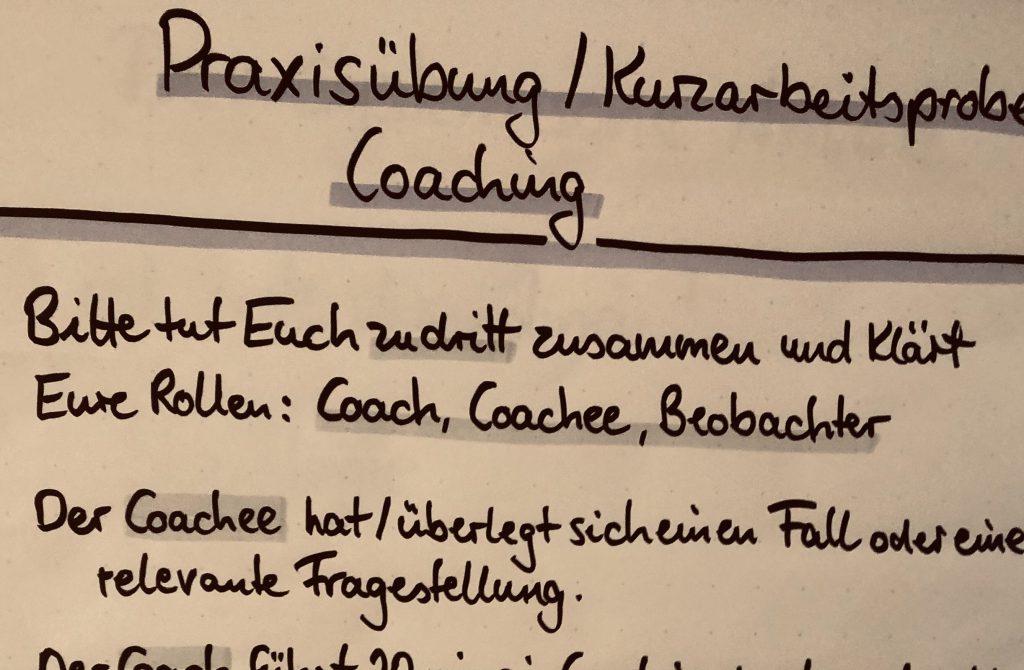 Praxisübung / Kurzarbeitsprobe
Coaching
Bitte tut Euch zu dritt zusammen und klärt
Eure Rollen: Coach, Coachee, Beobachter
Der Coachee hat/überlegt sich einen Fall oder eine
relevante Fragestellung.
Der Coach führt 20